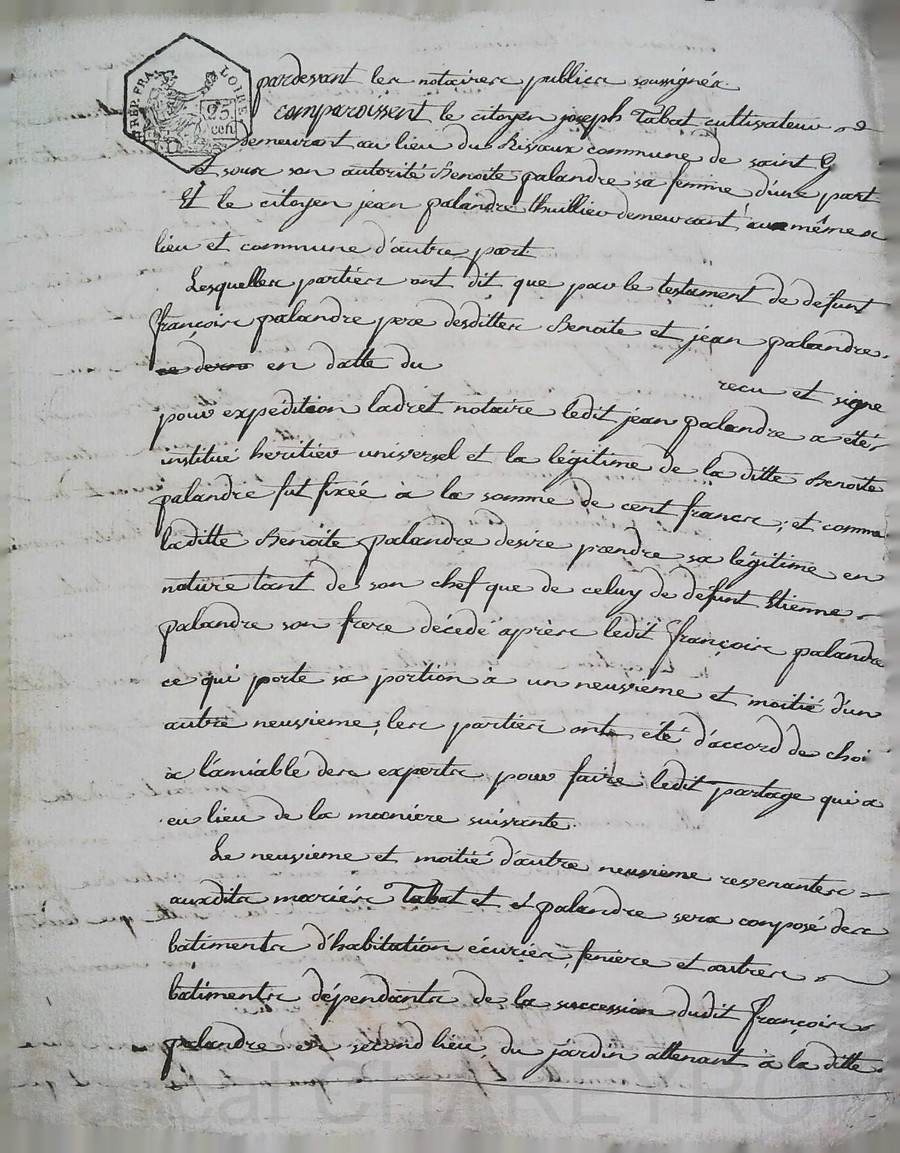 REP. FRA. LOIRE.
25 cen.
pardevant les notaires publics soussignés
comparoissent le citoyen joseph Tabat cultivateur
demeurant au lieu du commune de saint
et sous son autorité Benoite palandre sa femme d'une part
Et le citoyen jean palandre thuillier demeurant aux mêmes
lieu et commune d'autre part
Lesquelles parties ont dit que par le testament de defunt
françois palandre pere desdittes Benoite et jean palandre
en datte du
recu et signé
pour expedition ladret notaire ledit jean palandre a eté
institué heritier universel et la légitime de la ditte Benoite
palandre fut fixéé à la somme de cent francs, et comme
laditte Benoite palandre desire prendre sa légitime en
nature tant de son chef que de celuy de defunt Etienne
palandre son frere décedé après ledit françois palandre
ce qui porte sa portion a un neuvieme et moitié d'un
autre neuvieme, les parties ont été d'accord de choi
à l'amiable des experts pour faire ledit partage qui a
eu lieu de la maniere suivante.
Le neuvieme et moitié d'autre neuvieme revenantes
auxdits mariés Tabat et palandre sera composé des
batiments d'habitation écuries, feniere et autres
batiments dépendants de la succession dudit françois
palandre en second lieu, du jardin attenant à la ditte
Pascal CHAREYRON